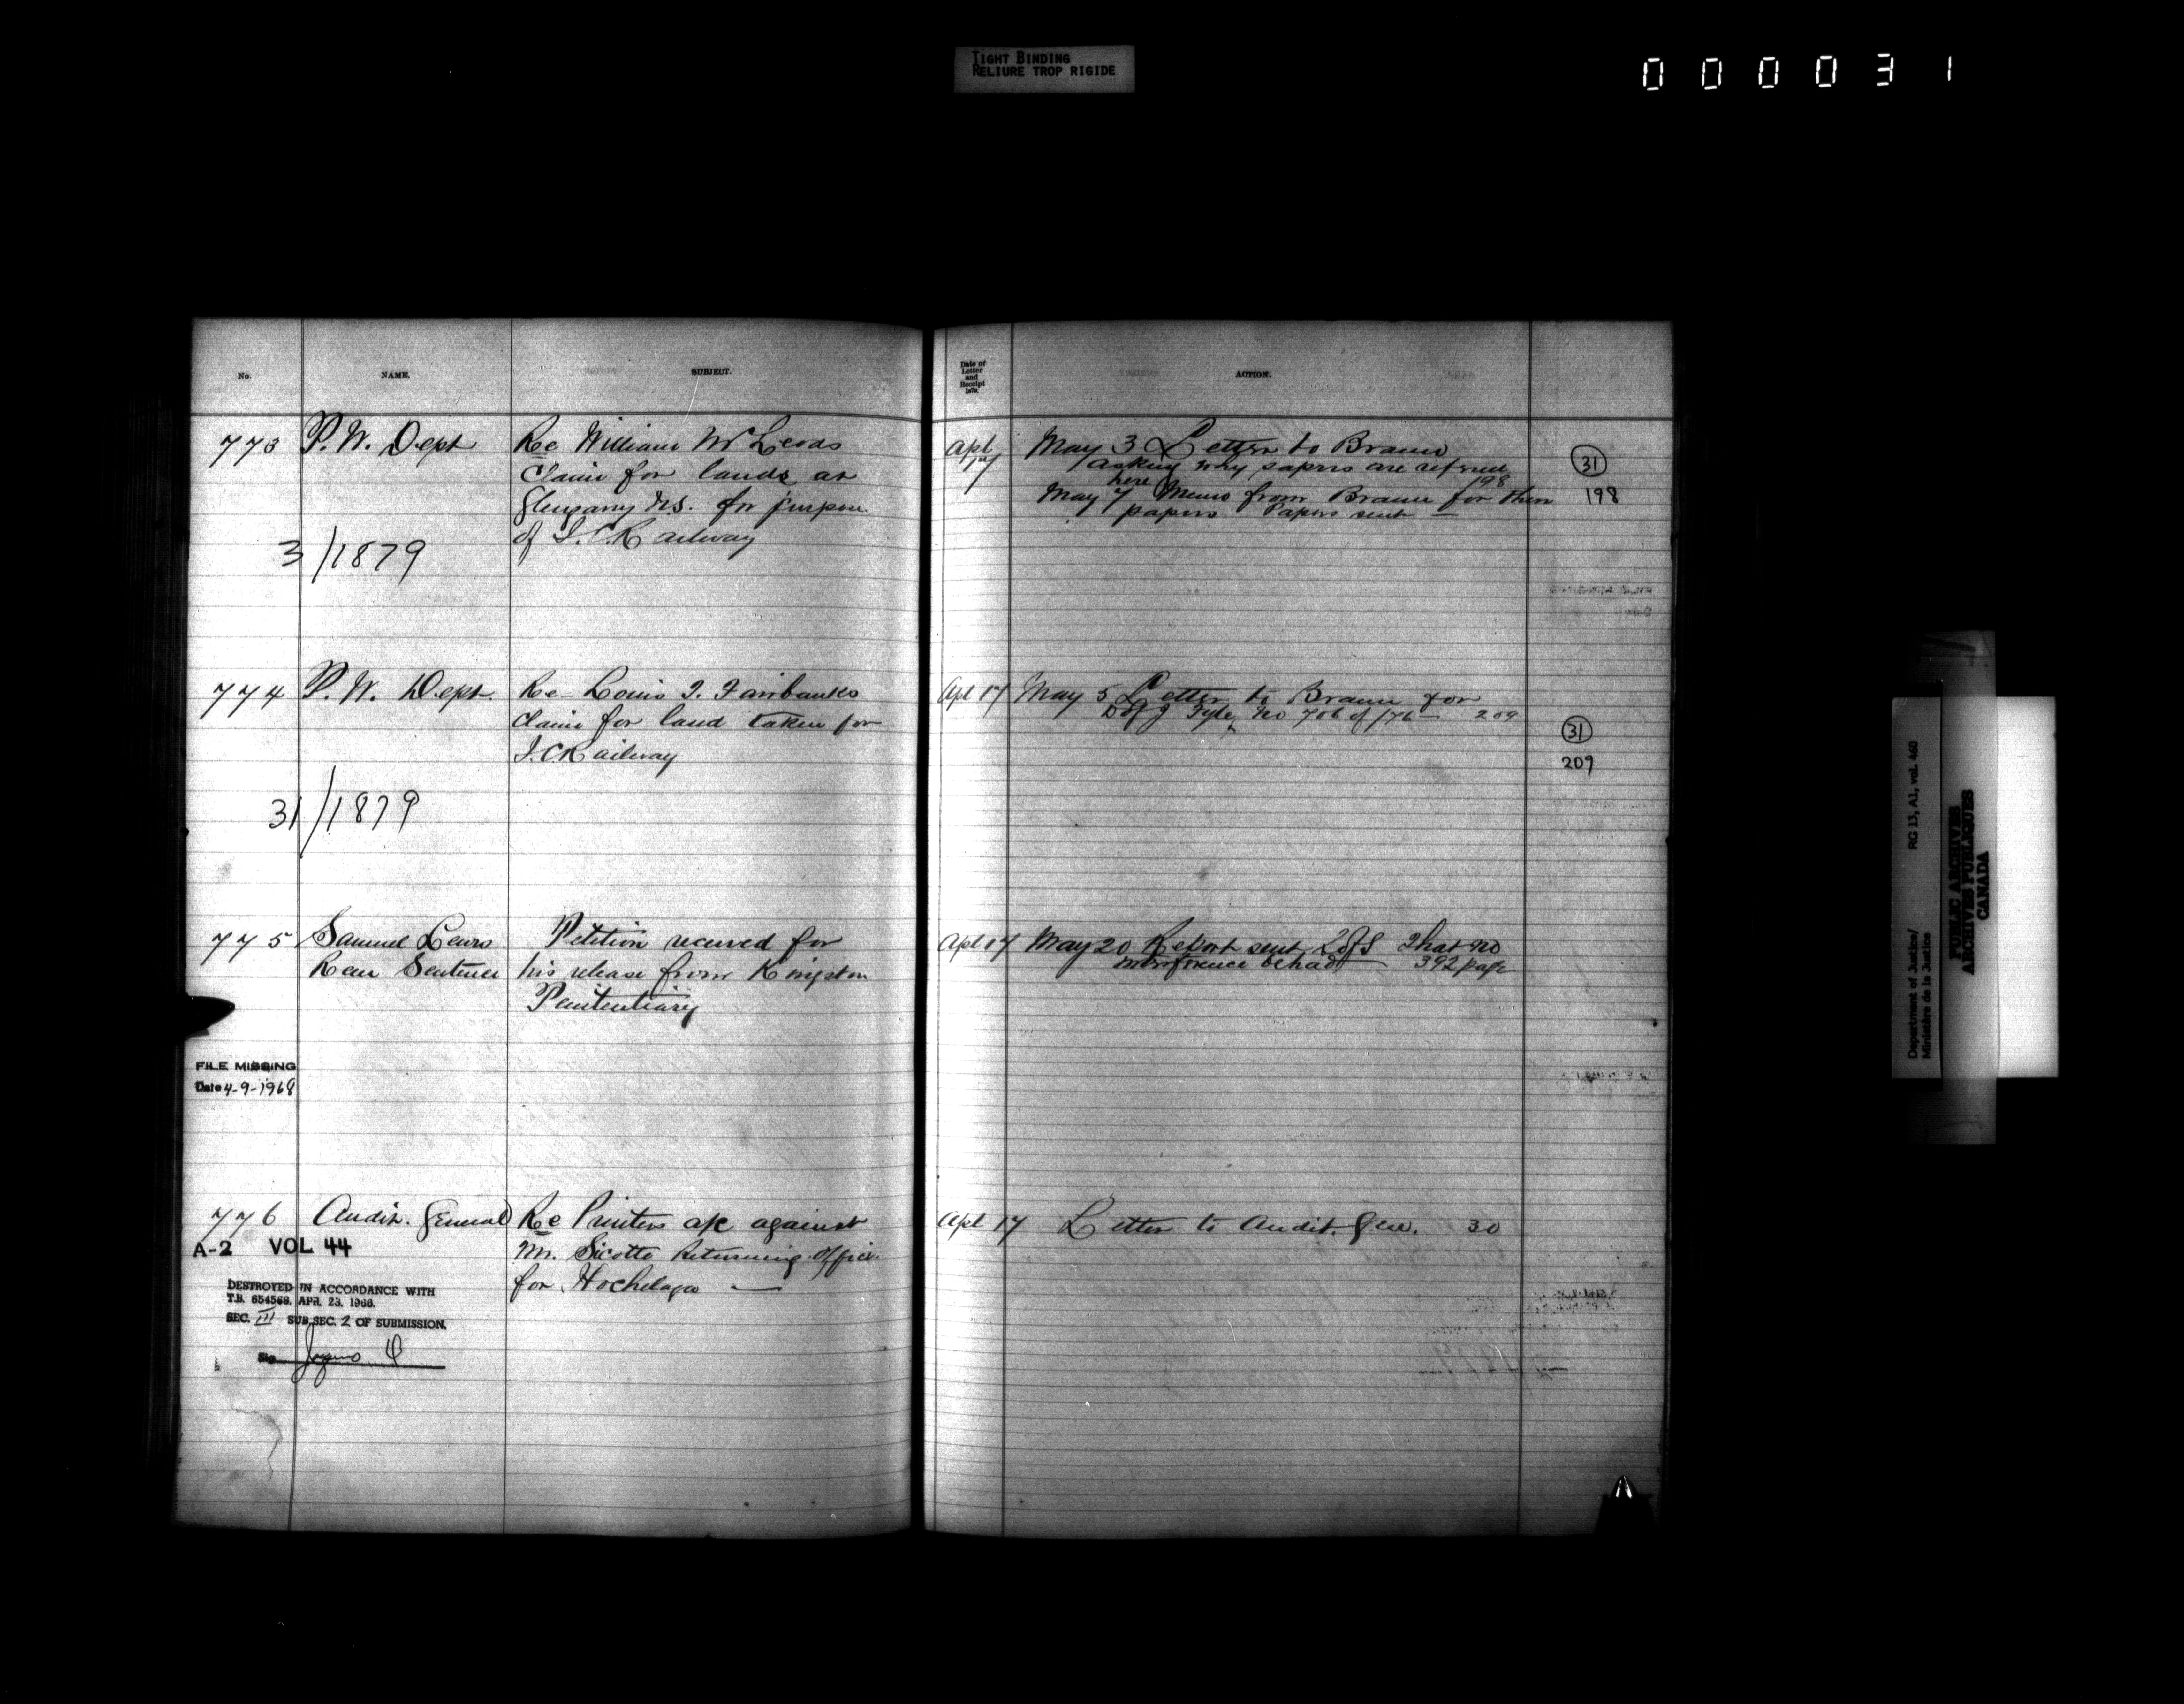 TIGHT BINDING
RELIURE TROP RIGIDE
000031
No.
NAME.
SUBJECT.
773
P. W. Dept
Re William McLeods
Claim for lands at
Glengarry N.S. for purpose
of I. C. Railway
3/1879
774
P. W. Dept.
Re Louis J. Fairbanks
Claim for land taken for
I. C Railway
31/1879
775
Samuel Lewis
Petition received for
Reur Sentence
his release from Kingston
Penitentiary
FILE MISSING
Date 4-9-1968
776
Audit. General
Re Printers a/c against
Mr. Sicotte Returning Officer
for Hochelaga —
A-2 VOL 44
DESTROYED IN ACCORDANCE WITH
T.B. 654569, APR. 23, 1966.
SEC. III SUB.SEC. 2 OF SUBMISSION.
Sig.
Date of
Letter
and
Receipt
1879.
ACTION.
Apl
17
May 3 Letter to Braun
asking why papers are referred
here 198
May 7 Memo from Braun for them
papers Papers sent —
31
198
Apl 17
May 5 Letter to Braun for
D of J Fyle No 706 of /76 — 209
31
209
Apl 17
May 20 Report sent S of S That no
interference be had — 392 page
Apl 17
Letter to Audit. Gen. 30
Department of Justice/
Ministère de la Justice
RG 13, A1, vol. 460
PUBLIC ARCHIVES
ARCHIVES PUBLIQUES
CANADA